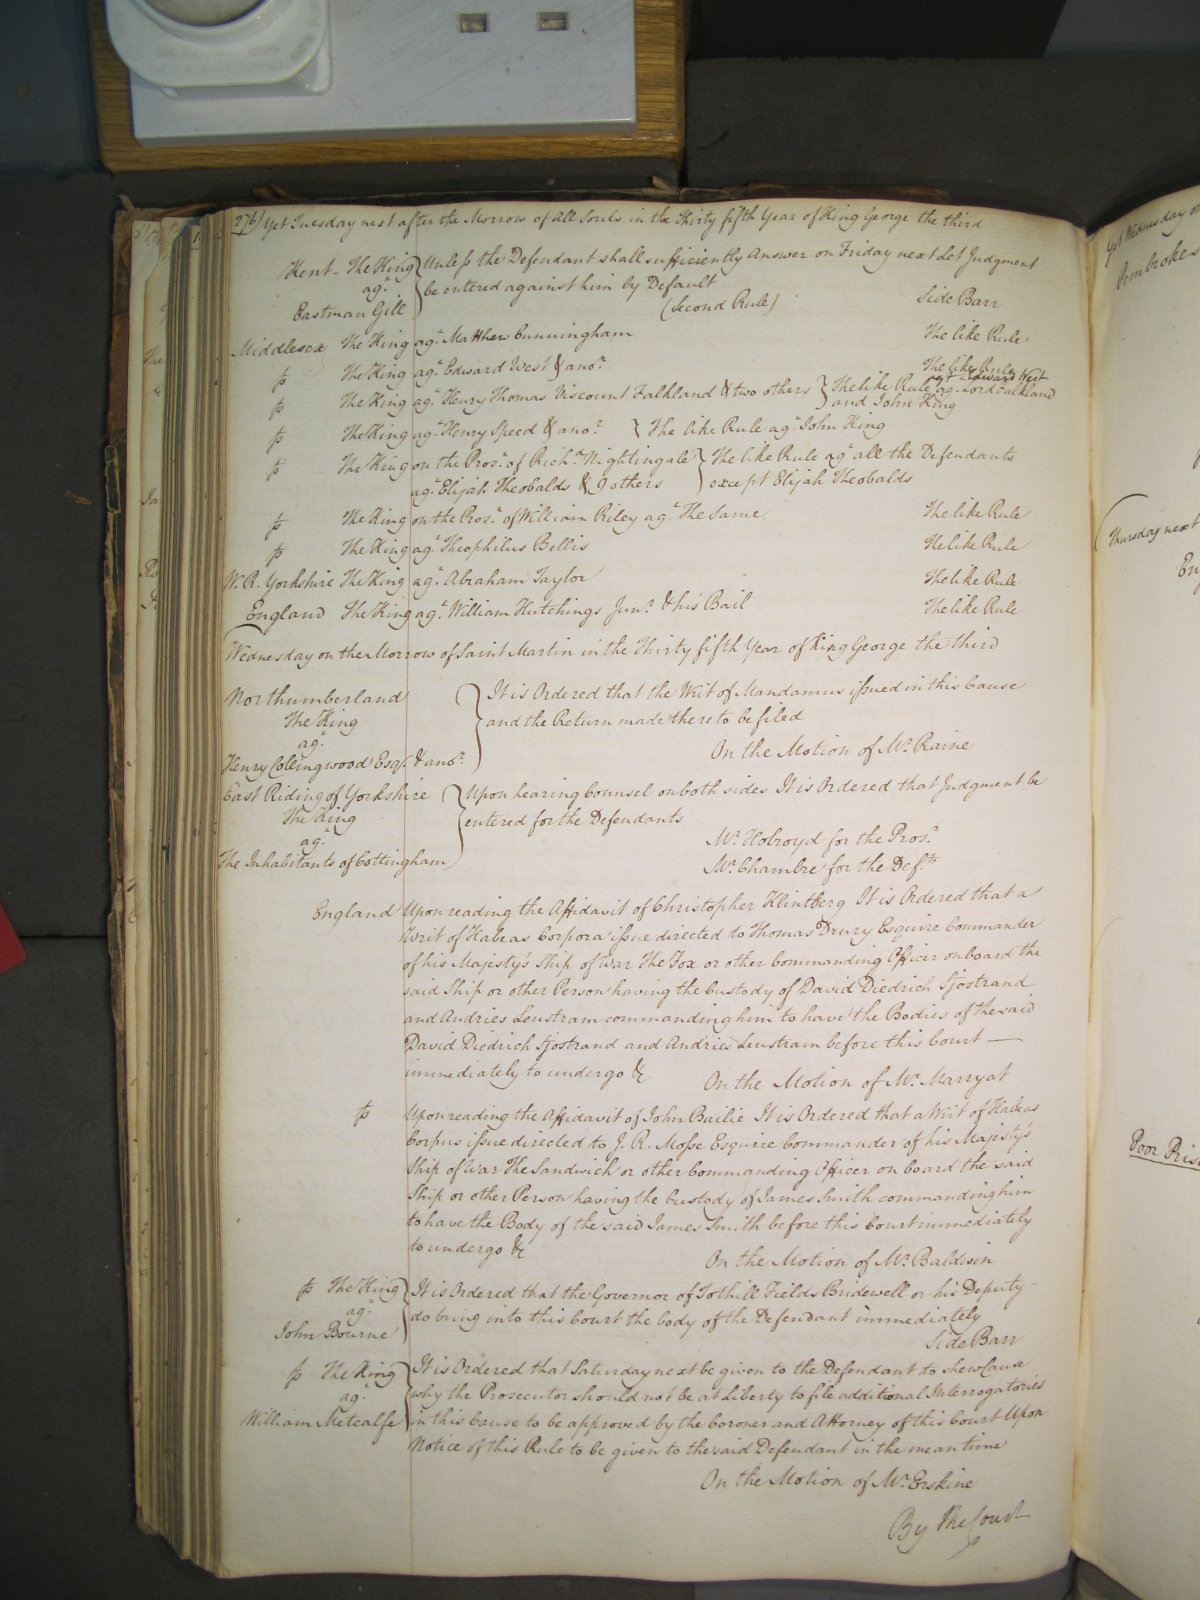 276) Yet Tuesday next after the Morrow of All Souls in the Thirty fifth Year of King George the third
Kent - The King } Unless the Defendant shall sufficiently Answer on Friday next Let Judgment
agt. be entered against him by Default
Eastman Gill (Second Rule) Side Barr
Middlesex The King agt. Matthew Cunningham The like Rule
The King agt. Edward West & anor. The like Rule agt. Edward West
The King agt. Henry Thomas Viscount Falkland & two others } The like Rule agt. Lord Falkland
and John King
The King agt. Henry Speed & anor. } The like Rule agt. John King
The King on the Pros. of Richd. Nightingale } The like Rule agt. all the Defendants
agt. Elijah Theobalds & 9 others except Elijah Theobalds
The King on the Pros. of William Riley agt. The Same The like Rule
The King agt. Theophilus Bellis The like Rule
W. R. Yorkshire The King agt. Abraham Taylor The like Rule
England The King agt. William Hutchings Junr. & his Bail The like Rule
Wednesday on the Morrow of Saint Martin in the Thirty fifth Year of King George the third
Northumberland } It is Ordered that the Writ of Mandamus issued in this Cause
The King and the Return made thereto be filed
agt. On the Motion of Mr. Raine
Henry Collingwood Esqr. & anor.
East Riding of Yorkshire } Upon hearing Counsel on both sides It is Ordered that Judgment be
The King entered for the Defendants
agt. Mr. Holroyd for the Pros.
The Inhabitants of Cottingham Mr. Chambre for the Defts.
England Upon reading the Affidavit of Christopher Klintberg It is Ordered that a
Writ of Habeas Corpora issue directed to Thomas Drury Esquire Commander
of his Majesty's Ship of War The Fox or other Commanding Officer onboard the
said Ship or other Person having the Custody of David Diedrich Sjostrand
and Andries Leustram commanding him to have the Bodies of the said
David Diedrich Sjostrand and Andries Leustram before this Court —
immediately to undergo &c On the Motion of Mr. Marryat
Upon reading the Affidavit of John Bailie It is Ordered that a Writ of Habeas
Corpus issue directed to J. R. Mosse Esquire Commander of his Majesty's
Ship of War The Sandwich or other Commanding Officer on board the said
Ship or other Person having the Custody of James Smith commanding him
to have the Body of the said James Smith before this Court immediately
to undergo &c On the Motion of Mr. Baldwin
The King } It is Ordered that the Governor of Tothill Fields Bridewell or his Deputy
agt. do bring into this Court the body of the Defendant immediately
John Bourne Side Barr
The King } It is Ordered that Saturday next be given to the Defendant to shew Cause
agt. why the Prosecutor should not be at liberty to file additional Interrogatories
William Metcalfe in this Cause to be approved by the Coroner and Attorney of this Court Upon
Notice of this Rule to be given to the said Defendant in the mean time
On the Motion of Mr. Erskine
By the Court
Yet Wednesday
Pembrokes
Thursday next
Poor Pris